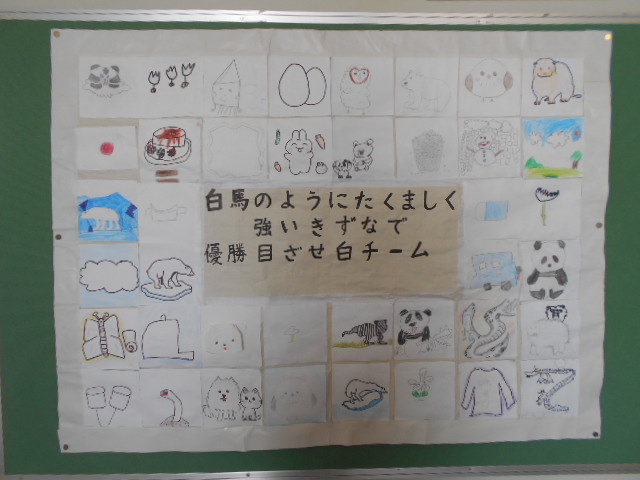 白馬のようにたくましく
強いきずなで
優勝目ざせ白チーム